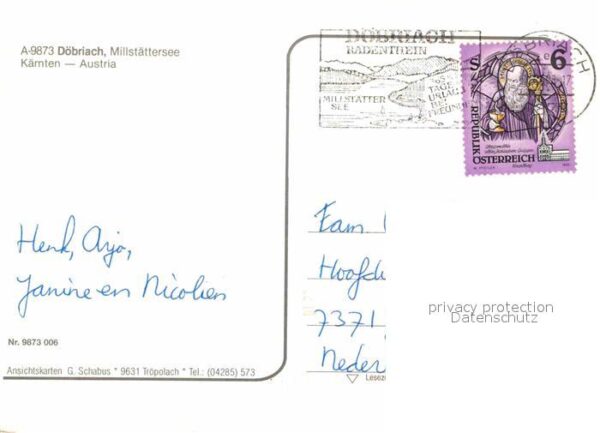 A-9873 Döbriach, Millstättersee
Kärnten — Austria
DÖBRIACH
RADENTHEIN
365
TAGE
URLAUB
BEI
FREUNDEN
MILLSTÄTTER
SEE
S 6
REPUBLIK
ÖSTERREICH
Henk, Arjo,
Janine en Nicolien
Fam
Hoofd
7371
Neder
privacy protection
Datenschutz
Nr. 9873 006
Ansichtskarten G. Schabus * 9631 Tröpolach * Tel.: (04285) 573